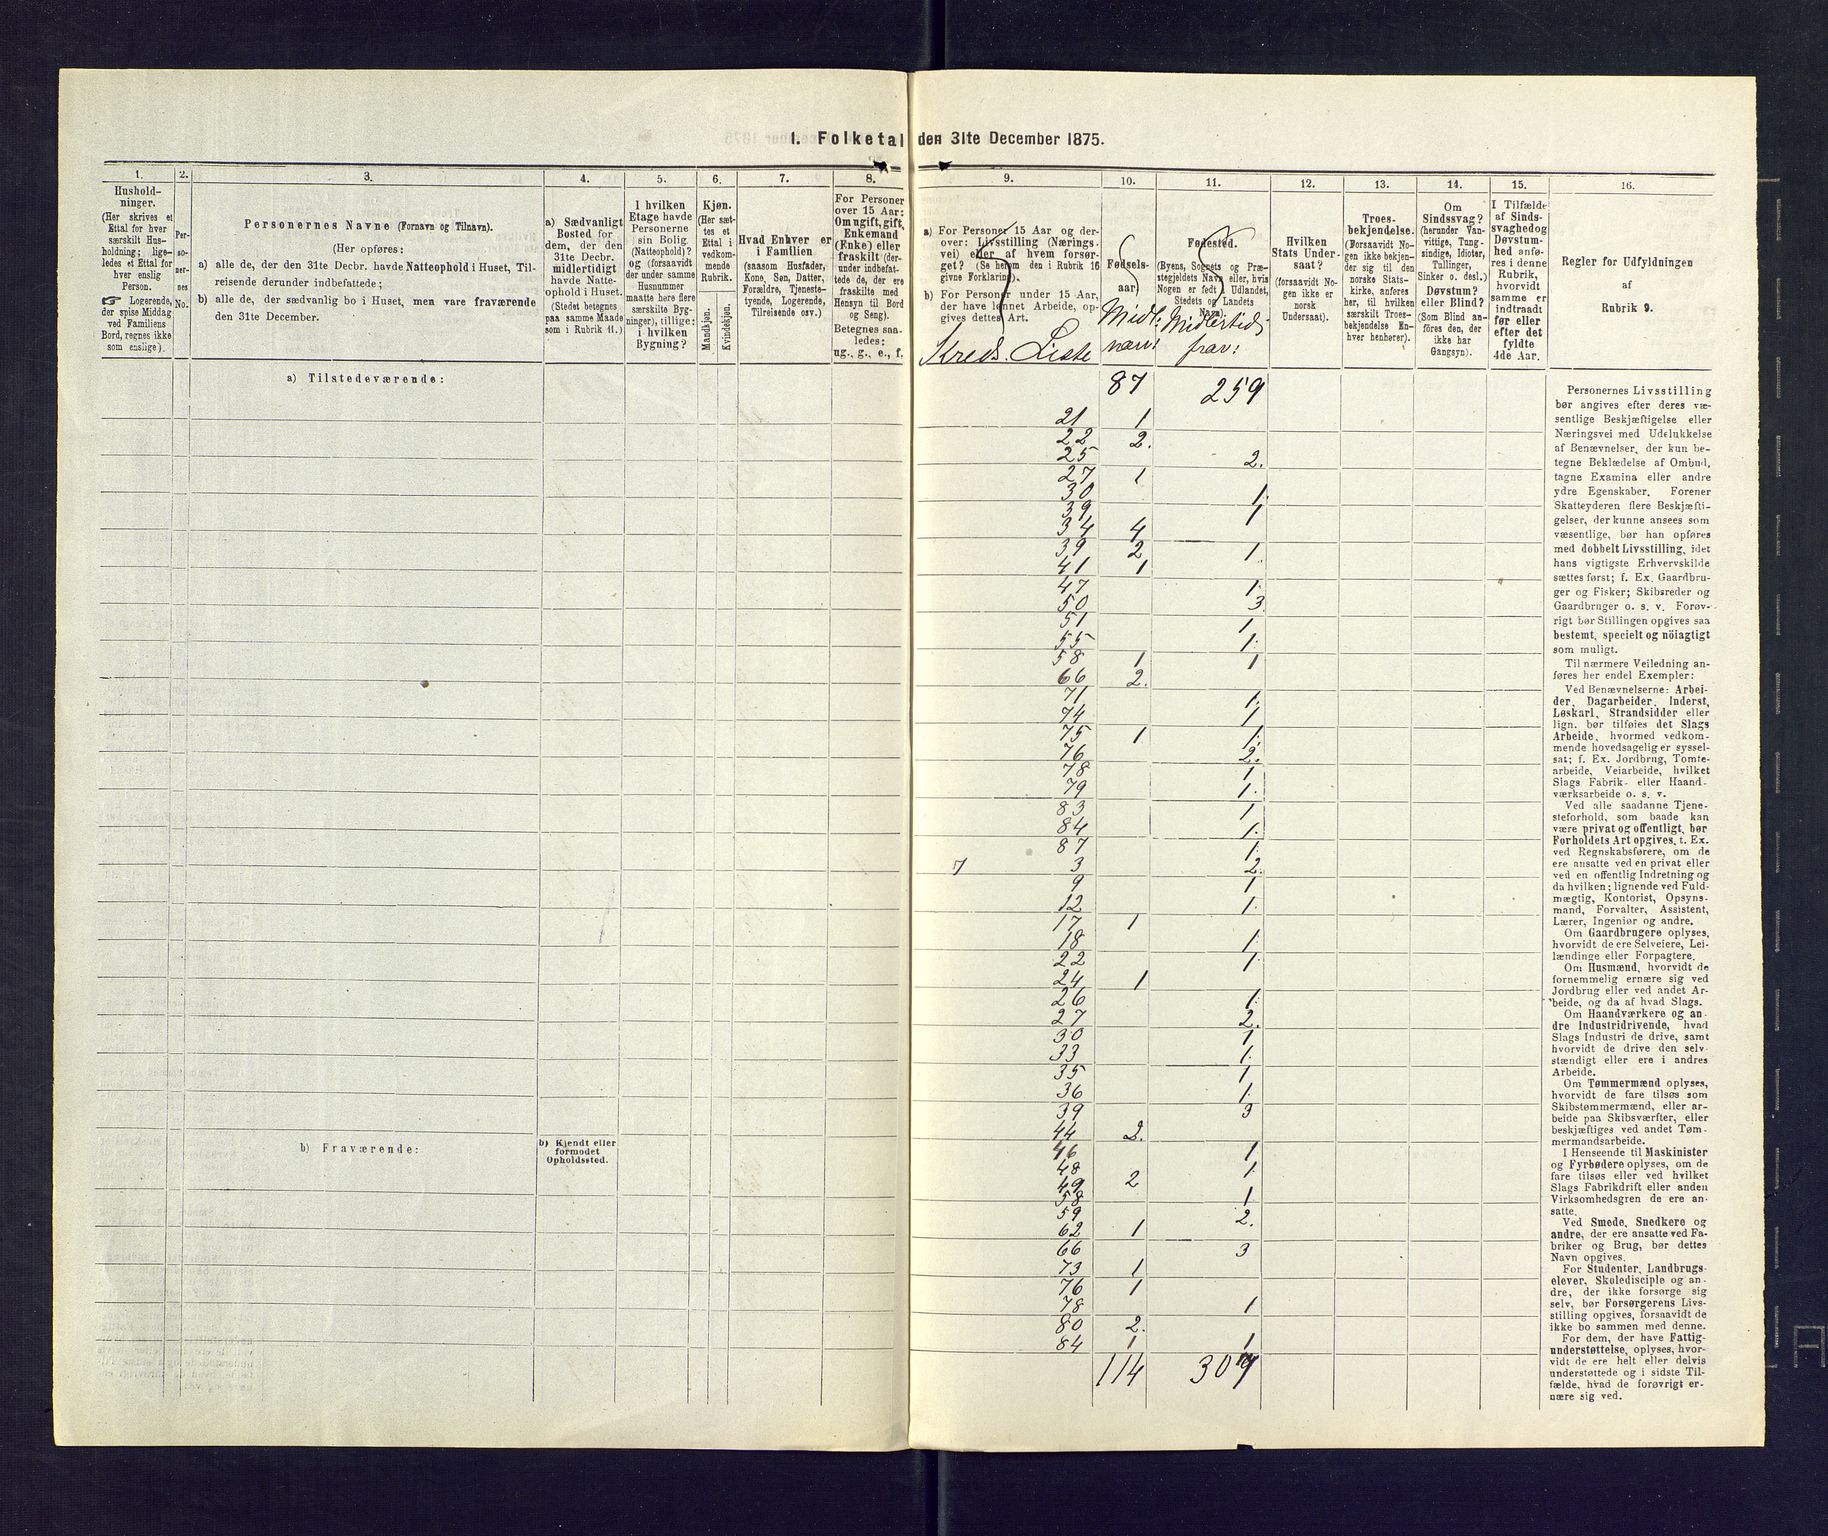 1. Folketal den 31te December 1875.
1.
Hushold-
ninger.
(Her skrives et
Ettal for hver
særskilt Hus-
holdning; lige-
ledes et Ettal for
hver enslig
Person.
☞ Logerende,
der spise Middag
ved Familiens
Bord, regnes ikke
som enslige).
2.
Per-
so-
ner-
nes
No.
3.
Personernes Navne (Fornavn og Tilnavn).
(Her opføres:
a) alle de, der den 31te Decbr. havde Natteophold i Huset, Til-
reisende derunder indbefattede;
b) alle de, der sædvanlig bo i Huset, men vare fraværende
den 31te December.
4.
a) Sædvanligt
Bosted for
dem, der den
31te Decbr.
midlertidigt
havde Natte-
ophold i Huset.
(Stedet betegnes
paa samme Maade
som i Rubrik 11.)
5.
I hvilken
Etage havde
Personerne
sin Bolig
(Natteophold)?
og (forsaavidt
der under samme
Husnummer
maatte høre flere
særskilte Byg-
ninger), tillige:
i hvilken
Bygning?
6.
Kjøn.
(Her sæt-
tes et
Ettal i
vedkom-
mende
Rubrik.
Mandkjøn.
Kvindekjøn.
7.
Hvad Enhver er
i Familien
(saasom Husfader,
Kone, Søn, Datter,
Forældre, Tjeneste-
tyende, Logerende,
Tilreisende osv.)
8.
For Personer
over 15 Aar:
Om ugift, gift,
Enkemand
(Enke) eller
fraskilt (der-
under indbefat-
tede, der ere
fraskilte med
Hensyn til Bord
og Seng).
Betegnes saa-
ledes:
ug., g., e., f.
9.
a) For Personer 15 Aar og der-
over: Livsstilling (Nærings-
vei) eller af hvem forsør-
get? (Se herom den i Rubrik 16
givne Forklaring).
b) For Personer under 15 Aar,
der have lønnet Arbeide, op-
gives dettes Art.
Kreds. Liste
10.
Fødsels-
aar)
Midl:
nærv:
11.
Fødested.
(Byens, Sognets og Præ-
stegjeldets Navn eller, hvis
Nogen er født i Udlandet,
Stedets og Landets
Navn).
Midlertid:
frav:
12.
Hvilken
Stats Under-
saat?
(forsaavidt No-
gen ikke er
norsk
Undersaat).
13.
Troes-
bekjendelse.
(Forsaavidt No-
gen ikke bekjen-
der sig til den
norske Stats-
kirke, anføres
her, til hvilken
særskilt Troes-
bekjendelse En-
hver henhører).
14.
Om
Sindssvag?
(herunder Van-
vittige, Tung-
sindige, Idioter,
Tullinger,
Sinker o. desl.)
Døvstum?
eller Blind?
(Som Blind an-
føres den, der
ikke har
Gangsyn).
15.
I Tilfælde
af Sinds-
svaghed og
Døvstum-
hed anfø-
res i denne
Rubrik,
hvorvidt
samme er
indtraadt
før eller
efter det
fyldte
4de Aar.
16.
Regler for Udfyldningen
af
Rubrik 9.
a) Tilstedeværende:
87 259
21 1
22 2.
25 2.
27 1
30 1.
39 1
34 4
39 2 1.
41 1
47 1.
50 3
51 1
55 1.
58 1 1
66 2.
71 1.
74 1
75 1 1.
76 2.
78 1
79 1.
83 1
84 1.
87 1.
7 3 2.
9 1
12 1.
17 1
18 1.
22 1.
24 1
26 1.
27 2.
30 1
33 1.
35 1
36 1.
39 3
44 2.
46 1
48 1.
49 2
58 1
59 2.
62 1
66 3
73 1
76 1
78 1
80 2.
84 1 1
114 309
b) Fraværende:
b) Kjendt eller
formodet
Opholdssted.
Personernes Livsstilling
bør angives efter deres væ-
sentlige Beskjæftigelse eller
Næringsvei med Udelukkelse
af Benævnelser, der kun be-
tegne Beklædelse af Ombud,
tagne Examina eller andre
ydre Egenskaber. Forener
Skatteyderen flere Beskjæfti-
gelser, der kunne ansees som
væsentlige, bør han opføres
med dobbelt Livsstilling, idet
hans vigtigste Erhvervskilde
sættes først; f. Ex. Gaardbru-
ger og Fisker; Skibsreder og
Gaardbruger o. s. v. Forøv-
rigt bør Stillingen opgives saa
bestemt, specielt og nöiagtigt
som muligt.
Til nærmere Veiledning an-
føres her endel Exempler:
Ved Benævnelserne: Arbei-
der, Dagarbeider, Inderst,
Løskarl, Strandsidder eller
lign. bør tilføies det Slags
Arbeide, hvormed vedkom-
mende hovedsagelig er syssel-
sat; f. Ex. Jordbrug, Tomte-
arbeide, Veiarbeide, hvilket
Slags Fabrik- eller Haand-
værksarbeide o. s. v.
Ved alle saadanne Tjene-
steforhold, som baade kan
være privat og offentligt, bør
Forholdets Art opgives, t. Ex.
ved Regnskabsførere, om de
ere ansatte ved en privat eller
ved en offentlig Indretning og
da hvilken; lignende ved Fuld-
mægtig, Kontorist, Opsyns-
mand, Forvalter, Assistent,
Lærer, Ingeniør og andre.
Om Gaardbrugere oplyses,
hvorvidt de ere Selveiere, Lei-
lændinge eller Forpagtere.
Om Husmænd, hvorvidt de
fornemmelig ernære sig ved
Jordbrug eller ved andet Ar-
beide, og da af hvad Slags.
Om Haandværkere og an-
dre Industridrivende, hvad
Slags Industri de drive, samt
hvorvidt de drive den selv-
stændigt eller ere i andres
Arbeide.
Om Tømmermænd oplyses,
hvorvidt de fare tilsøs som
Skibstømmermænd, eller ar-
beide paa Skibsværfter, eller
beskjæftiges ved andet Tøm-
mermandsarbeide.
I Henseende til Maskinister
og Fyrbødere oplyses, om de
fare tilsøs eller ved hvilket
Slags Fabrikdrift eller anden
Virksomhedsgren de ere an-
satte.
Ved Smede, Snedkere og
andre, der ere ansatte ved Fa-
briker og Brug, bør dettes
Navn opgives.
For Studenter, Landbrugs-
elever, Skoledisciple og an-
dre, der ikke forsørge sig
selv, bør Forsørgerens Livs-
stilling opgives, forsaavidt de
ikke bo sammen med denne.
For dem, der have Fattig-
understøttelse, oplyses, hvor-
vidt de ere helt eller delvis
understøttede og i sidste Til-
fælde, hvad de forøvrigt er-
nære sig ved.